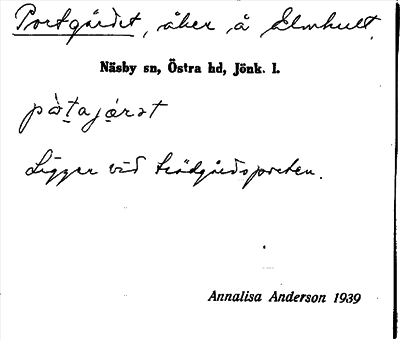 Portgärdet, åker å Elmhult.
Näsby sn, Östra hd, Jönk. l.
pò̀ṭajạ́rət
Ligger vid trädgårdsporten.
Annalisa Anderson 1939